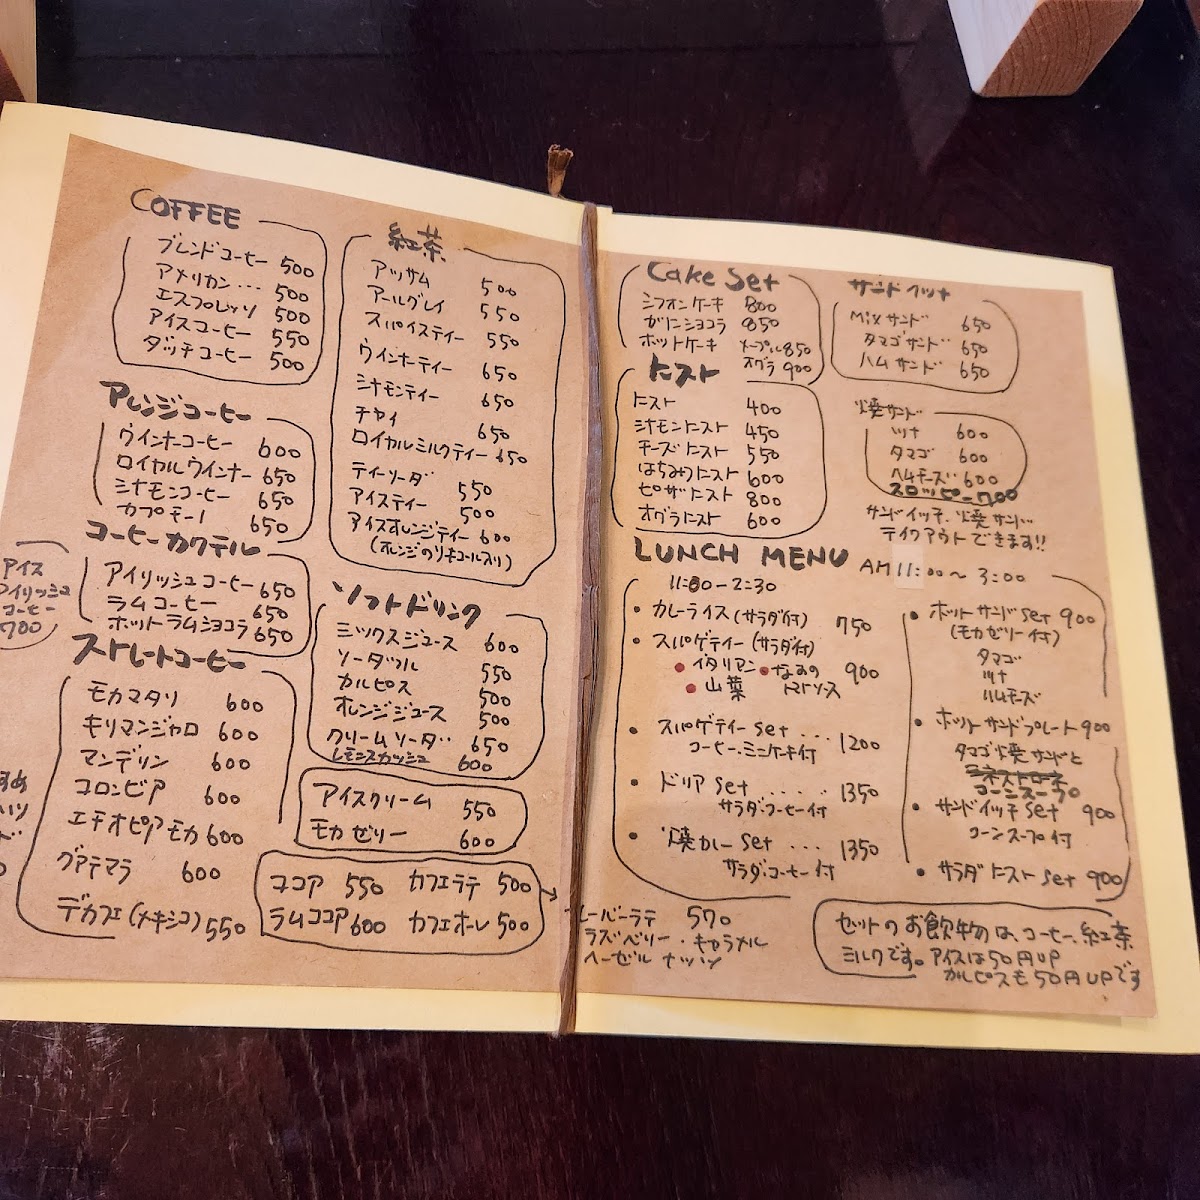 COFFEE
ブレンドコーヒー 500
アメリカン・・・ 500
エスプレッソ 500
アイスコーヒー 550
ダッチコーヒー 500
アレンジコーヒー
ウインナーコーヒー 600
ロイヤルウインナー 650
シナモンコーヒー 650
カプチーノ 650
コーヒーカクテル
アイリッシュコーヒー 650
ラムコーヒー 650
ホットラムショコラ 650
アイス
アイリッシュ
コーヒー
700
ストレートコーヒー
モカマタリ 600
キリマンジャロ 600
マンデリン 600
コロンビア 600
エチオピアモカ 600
グアテマラ 600
デカフェ(メキシコ) 550
紅茶
アッサム 500
アールグレイ 550
スパイスティー 550
ウインナーティー 650
シナモンティー 650
チャイ 650
ロイヤルミルクティー 650
ティーソーダ 550
アイスティー 500
アイスオレンジティー 600
(オレンジのリキュール入り)
ソフトドリンク
ミックスジュース 600
ソーダフル 550
カルピス 500
オレンジジュース 500
クリームソーダ 650
レモンスカッシュ 600
アイスクリーム 550
モカゼリー 600
ココア 550 カフェラテ 500
ラムココア 600 カフェオーレ 500
Cake Set
シフォンケーキ 800
がトショコラ 850
ホットケーキ メープル 850
オグラ 900
トースト
トースト 400
シナモントースト 450
チーズトースト 550
はちみつトースト 600
ピザトースト 800
オグラトースト 600
サンドイッチ
Mixサンド 650
タマゴサンド 650
ハムサンド 650
焼サンド
ツナ 600
タマゴ 600
ハムチーズ 600
スロッピー 700
サンドイッチ、焼サンド
テイクアウトできます!!
LUNCH MENU AM11:00~3:00
11:00-2:30
• カレーライス(サラダ付) 750
• スパゲティー(サラダ付)
● イタリアン ● なすの 900
● 山菜 トマトソース
• スパゲティー set ... 1200
コーヒー・ミニケーキ付
• ドリア set .... 1350
サラダ・コーヒー付
• 焼カレー set ... 1350
サラダ・コーヒー付
• ホットサンド set 900
(モカゼリー付)
タマゴ
ツナ
ハムチーズ
• ホットサンドプレート 900
タマゴ焼サンドと
コーンスープ
• サンドイッチ set 900
コーンスープ付
• サラダトースト set 900
レーバーラテ 570
ラズベリー・キャラメル
ヘーゼルナッツ
セットのお飲物は、コーヒー、紅茶
ミルクです。アイスは50円UP
カルピスも50円UPです